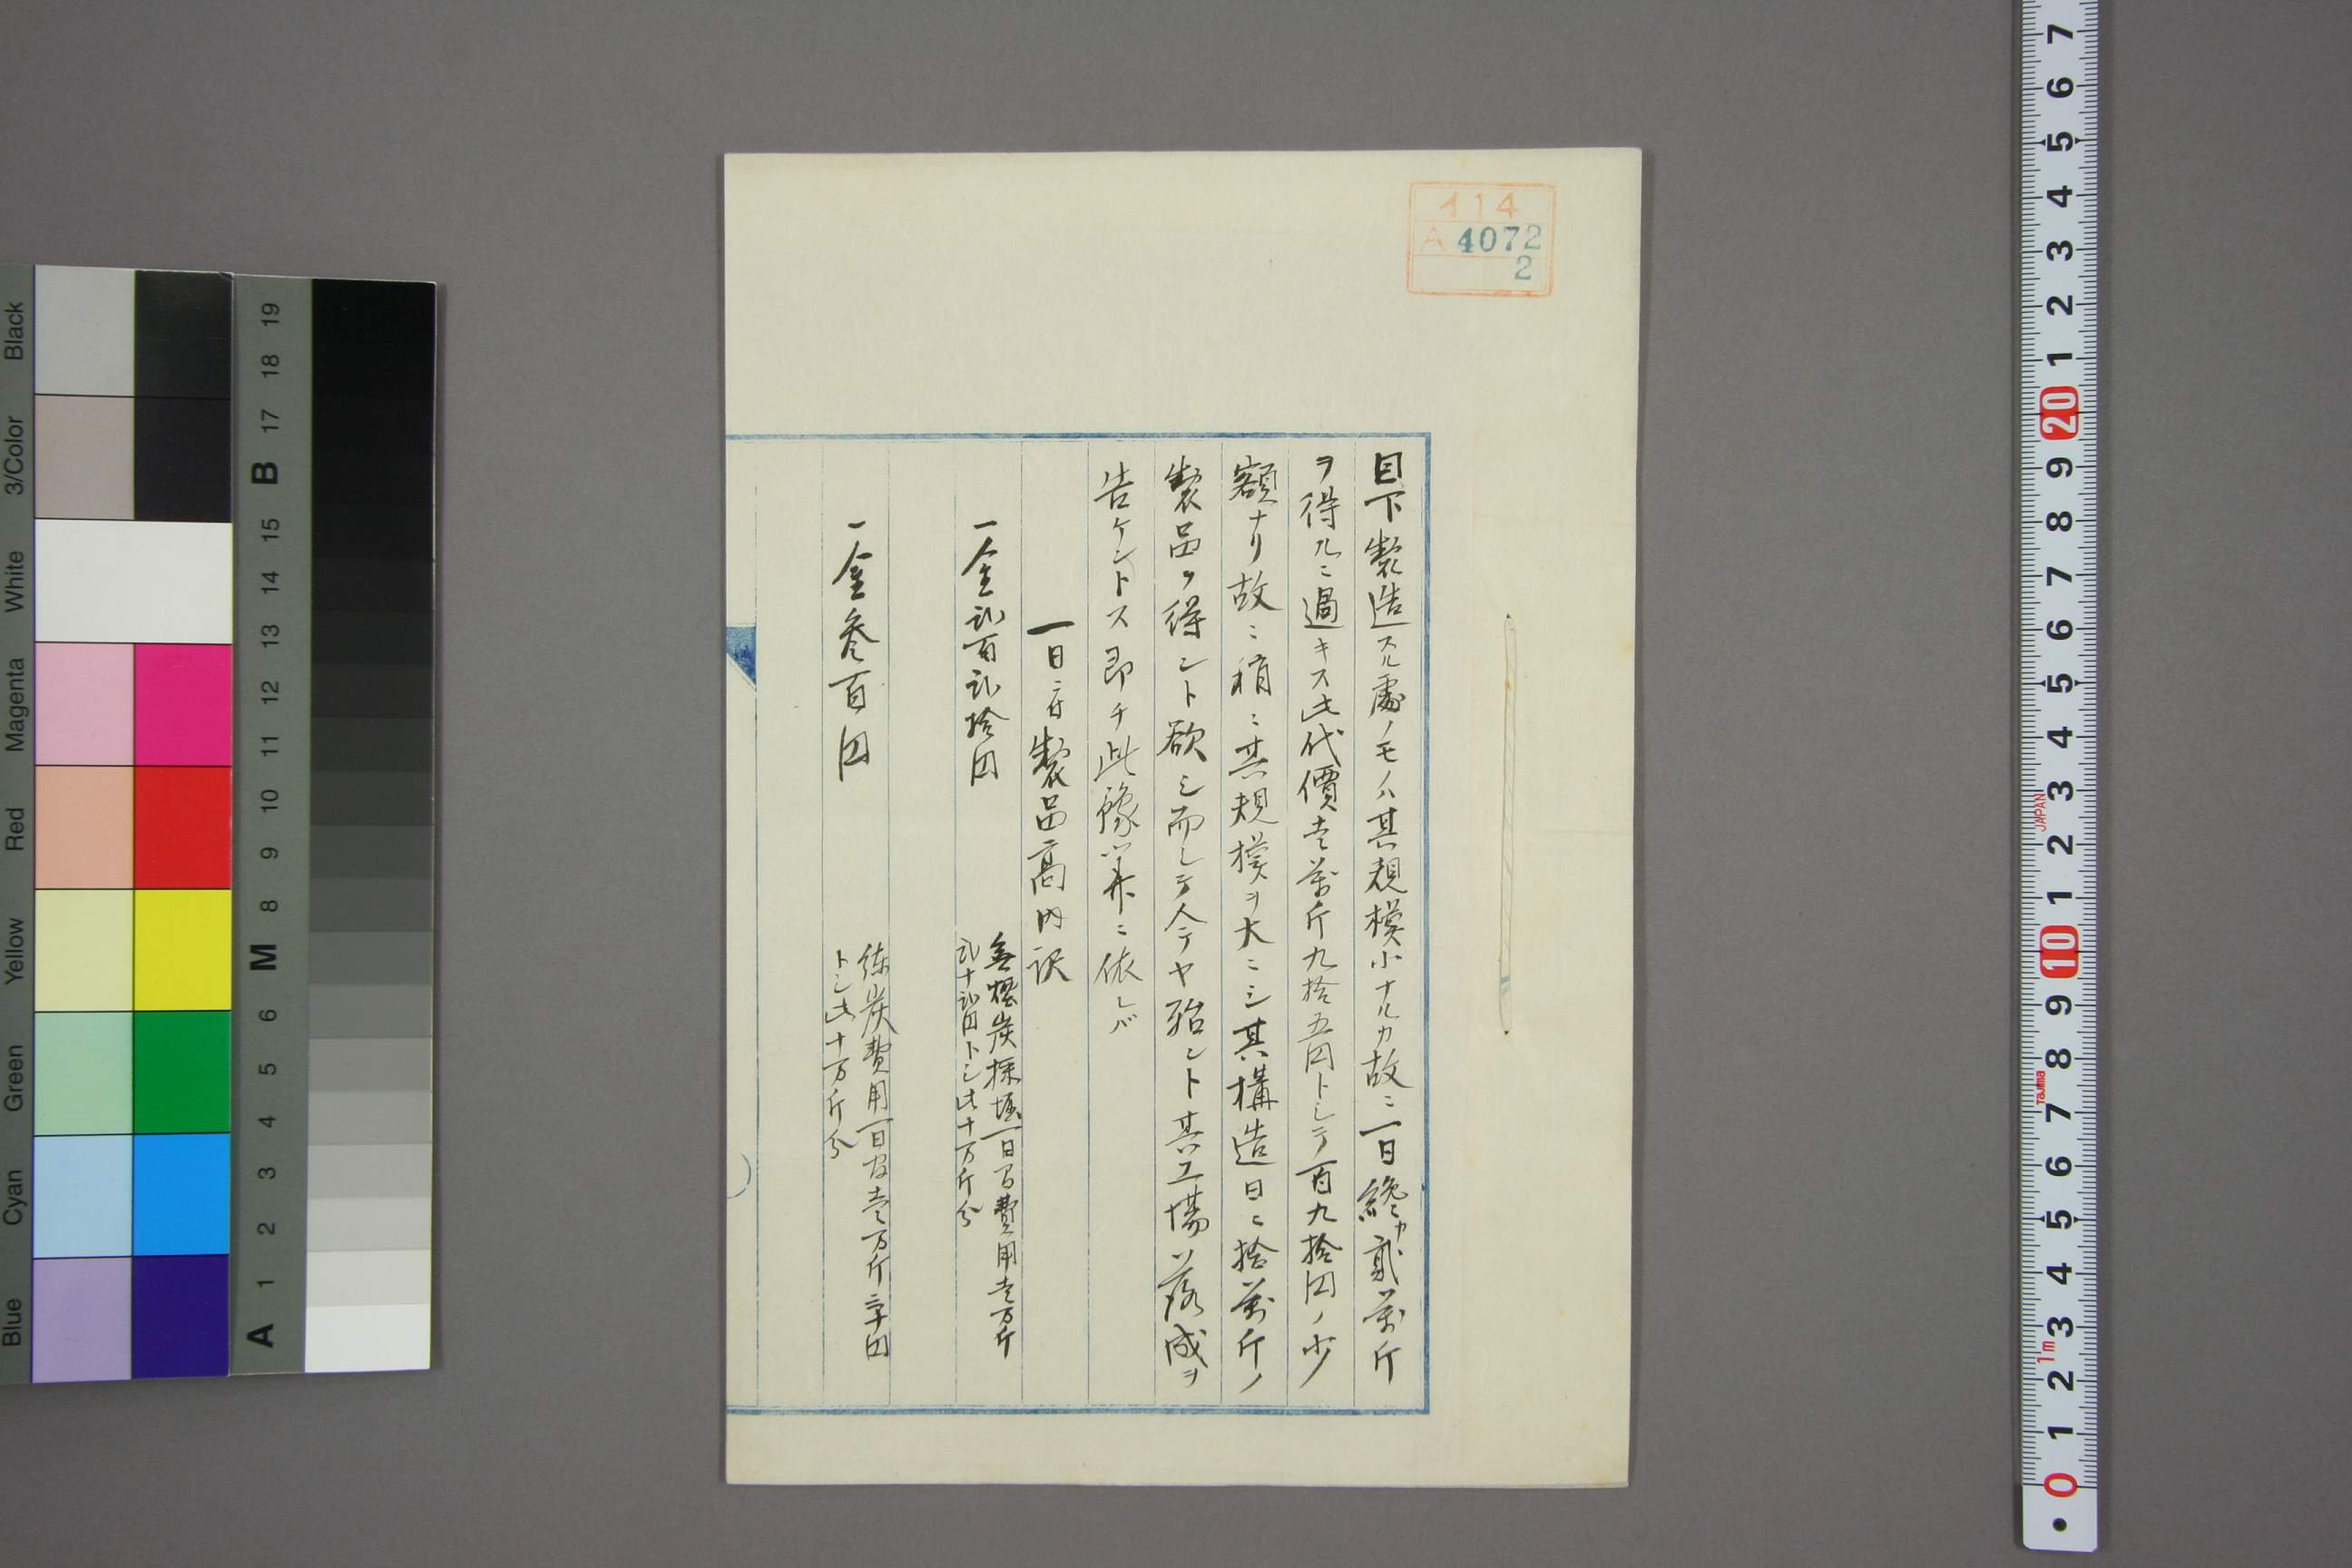 イ14
A 4072
2
目下製造スル處ノモノハ其規模小ナルカ故ニ一日纔カ貳萬斤
ヲ得ルニ過キス此代價壱萬斤九拾五円トシテ百九拾円ノ少
額ナリ故ニ稍ニ其規模ヲ大ニシ其構造日ニ拾萬斤ノ
製品ヲ得ント欲シ而シテ今ヤ殆ント其工場落成ヲ
告ケントス即チ此豫算ニ依レバ
一日ニ付製品高内訳
一金弐百弐拾円
無煙炭採堀一日ノ費用壱万斤
弐十弐円トシ此十万斤分
一金参百円
練炭費用一日壱万斤三十円
トシ此十万斤分
Black
3/Color
White
Magenta
Red
Yellow
Green
Cyan
Blue
19
18
17
B
15
14
13
12
11
10
9
8
M
6
5
4
3
2
1
A
7
6
5
4
3
2
1
20
9
8
7
6
5
4
3
2
1
10
9
8
7
6
5
4
3
2
1
0
JAPAN
Tajima
1m